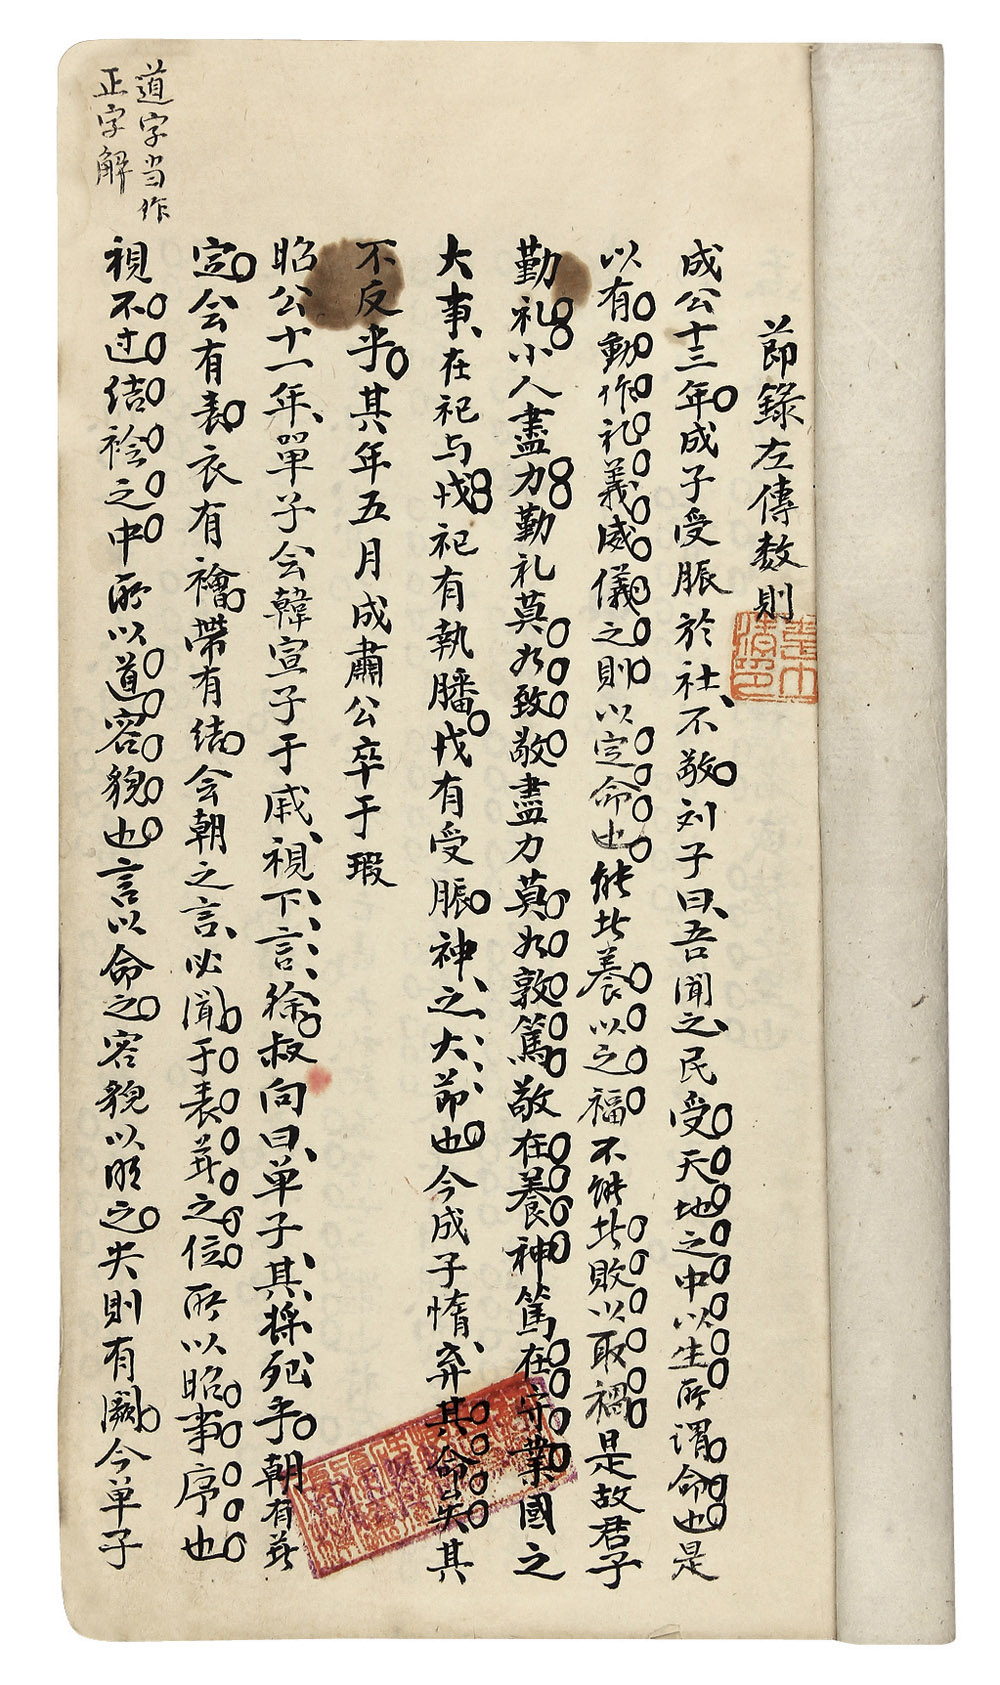 節錄左傳数則
成公十三年成子受脤於社不敬刘子曰吾聞之民受天地之中以生所謂命也是
以有動作礼義威儀之則以定命也能者養以之福不能者敗以取禍是故君子
勤礼小人盡力勤礼莫如致敬盡力莫如敦篤敬在養神篤在守業國之
大事在祀与戎祀有執膰戎有受脤神之大節也今成子惰弃其命矣其
不反乎其年五月成肅公卒于瑕
昭公十一年單子会韓宣子于戚視下言徐叔向曰单子其将死乎朝有著
定会有表衣有襘帶有結会朝之言必聞于表著之位所以昭事序也
視不过结襘之中所以道容貌也言以命之容貌以明之失則有闕今单子
道字当作
正字解